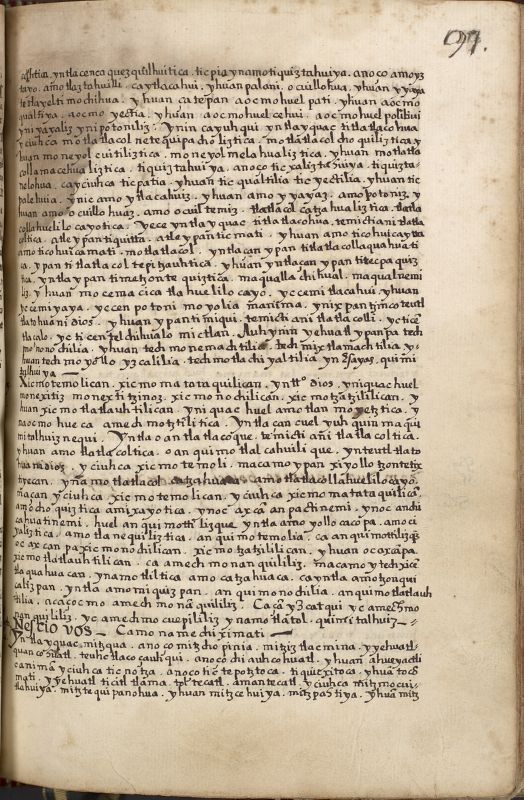 97.
tic pia ynamo tiquiztahuiya. anoço amo yz
tayo. amo tlaztahuilli. cay tlacahui. yhuan palani. ocuillohua. yhuan yyaya
tetlayelti mochihua. yhuan ca tepan aocmo huel pati. yhuan aocmo
qualtiya. aocmo yectia. yhuan aocmo huel cehui. aocmo huel polihui
yni yaxaliz yni potoniliz. Ynin cayuhqui yntla yquac titlatlacohua
yciuhca motlatlacol netequipacholiztica. motlatlacol choquiliztica y
huan moneyolcuitiliztica. moneyolmelahualiztica. yhuan motlatla
colla macehualiztica. tiquiztahuiya. anoço
nelohua. ca yciuhca ticpatia. yhuan tic qualtilia tic yectilia. yhuan tic
palehuia. ynic amo ytlacahuiz. yhuan amo yyayaz. amo potoniz. y
huan amo ocuillohuaz. amo ocuiltemiz. tlatlacol catzahualiztica.
collahuelilocayotica. Yece yntla yquac titlatlacohua, temictiani tlatla
coltica. atle ypan tiquitta. atle ypan ticmati. yhuan amo tichuicaytta
amo tichuicamati. motlatlacol. yntla çan ypan titlatlacollaquahuati
ca. ypan ti tlatlacoltepitzauhtica. yhuan yntla çan ypan titecpaquiz
tica. yntla ypan timehontequiztica. maqualla chihual. maqualnemi
liz. yhuan mo cemacica tlahuelilocayo. yc cemitlacahui. yhuan
yc cemiyaya. yc cen potoni moyolia manima. yn ixpantzinco teutl
tlatohuani dios. yhuan ypan timiqui. temictiani tlatlacolli. yc tice
tlacalo. yc ti centelchihualo mictlan. Auh ynin yehuatl ypanpa tech
mononochilia. yhuan techmonemachtilia. techmixtlamachtilia. y
huan techmoyollo yzcalilia. techmotlachiyaltilia yn Esayas, quimi
talhuiya
Xicmotemolican. xicmomatataquilican. yn tto dios. yniquac huel
monexitiz monextitzinoz. xicmonochilican. xicmotzatzililican. y
huan xicmotlatlauhtilican. yniquac huel amotlan moyetztica. y
naocmo hueca amechmotztilitica. Yntla çan cuel yuhquin maqui
mitalhuiznequi. Yntla oantlatlacoque. temictiani tlatlacoltica.
yhuan amotlatlacoltica. oanquimotlalcahuilique. ynteutl tlato
huani dios. yciuhca xicmotemoli. macamo ypan xiyollotzontetix
tiyecan. ynamotlatlacol catzahuaca. amotlatlacollahuelilocayo.
maçan yciuhca xicmotemolican. yciuhca xicmomatataquilican
amochoquiztica amixayotica. ynoc axcan anpactinemi. ynoc anchi
cahuatinemi. huel anquimottilizque. yntla amoyollocacopa. amoci
yaliztica. amotlanequiliztica. anquimotemolia. ca anquimottilizque
oc axcanpa xicmonochilican. xicmotzatzililican. yhuan oc oxcanpa.
xicmotlatlauhtilican. ca amechmonanquililiz. macamo ytechxice
tlaquahuacan. ynamotliltica amocatzahuaca. ca yntla amotzonqui
calizpan. yntla amomiquizpan. anquimonochilia. anquimotlatlauh
tilia. acaçocmo amechmonanquililiz. Caça yzcatqui yc amechmo
nanquililiz. yc amechmocuepililiz ynamotlatol. quimitalhuiz
Nescio vos — Camo namechiximati —
Yntla yquac mitzqua. anoço mitzchopinia. mitziztlacmina. yyehuatl
quancohuatl. teuhtlacoçauhqui. anoço chiauhcohuatl. yhuan
canima yciuhca ticnotza. anoço
mati. yyehuatl ticitl tlama. toltecatl. amantecatl. yciuhca mitzmocui
tlahuiya. mitztequipanohua. yhuan mitzcehuiya. mitzpahtiya. yhuan mitz